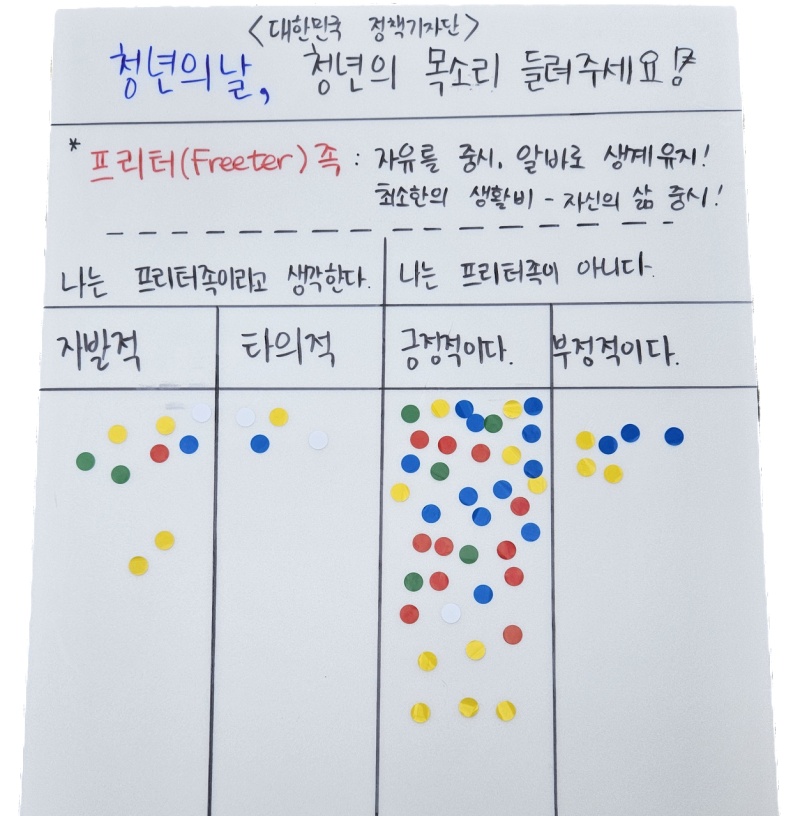 <대한민국 정책기자단>
청년의날, 청년의 목소리 들려주세요!
* 프리터(Freeter)족 : 자유를 중시, 알바로 생계유지!
최소한의 생활비 - 자신의 삶 중시!
나는 프리터족이라고 생각한다.
나는 프리터족이 아니다.
자발적
타의적
긍정적이다.
부정적이다.